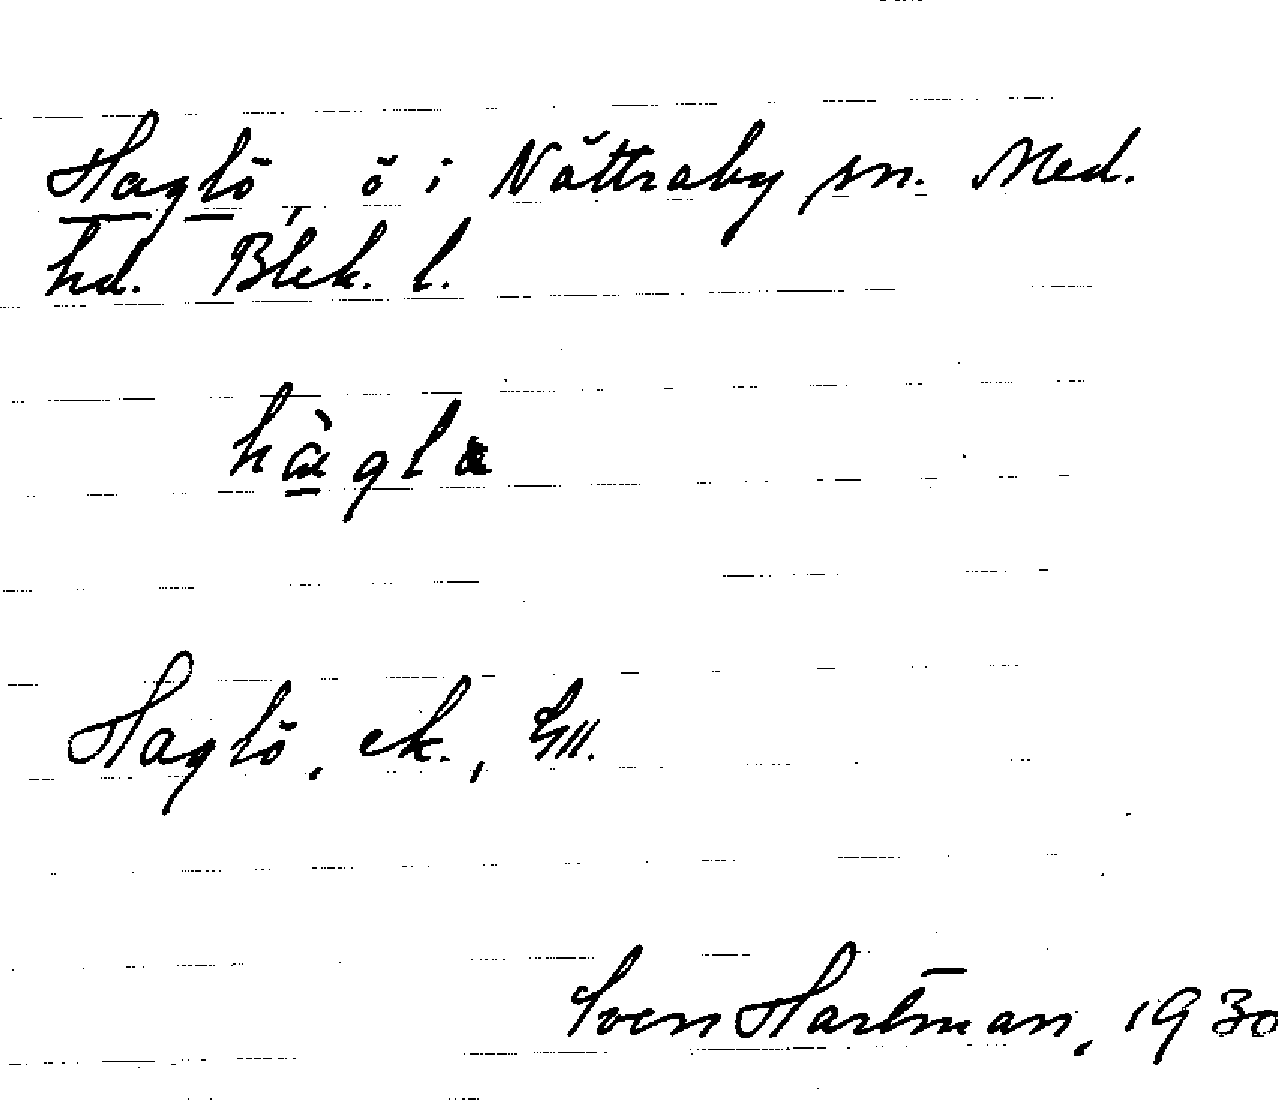 Haglö, ö i Nättraby sn. Med.
hd. Blek. l.
Haglö, ek., Gll.
Sven Hartman, 1930